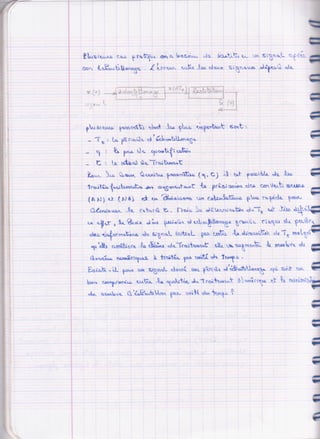 Plusieurs cas pratiques on a besoin de restituer un signal après
son échantillonnage. L'erreur entre les deux signaux dépend de
x(t) échantillonnage x(nTe) Restitution
x̂(t)
plusieurs paramètres dont les plus important sont :
- Te : la période d'échantillonnage
- q : le pas de quantification
- τ : le retard de Traitement
Pour les deux derniers paramètres (q, τ) il est possible de les
traiter en augmentant la précision des convertisseurs
(A N) et (N A) et en choisissant un calculateur plus rapide pour
diminuer le retard τ. Mais la détermination de Te est très
en effet, le choix d'une période d'échantillonnage grande risque de perdre
des informations du signal initial par contre la diminution de Te
qu'elle améliore la chaîne de Traitement elle va augmenter le nombre de
données numériques à traiter par unité de temps.
Existe-il pour un signal donné une période d'échantillonnage qui soit un
bon compromis entre la qualité du Traitement numérique et la
du nombre d'échantillon par unité de temps ?